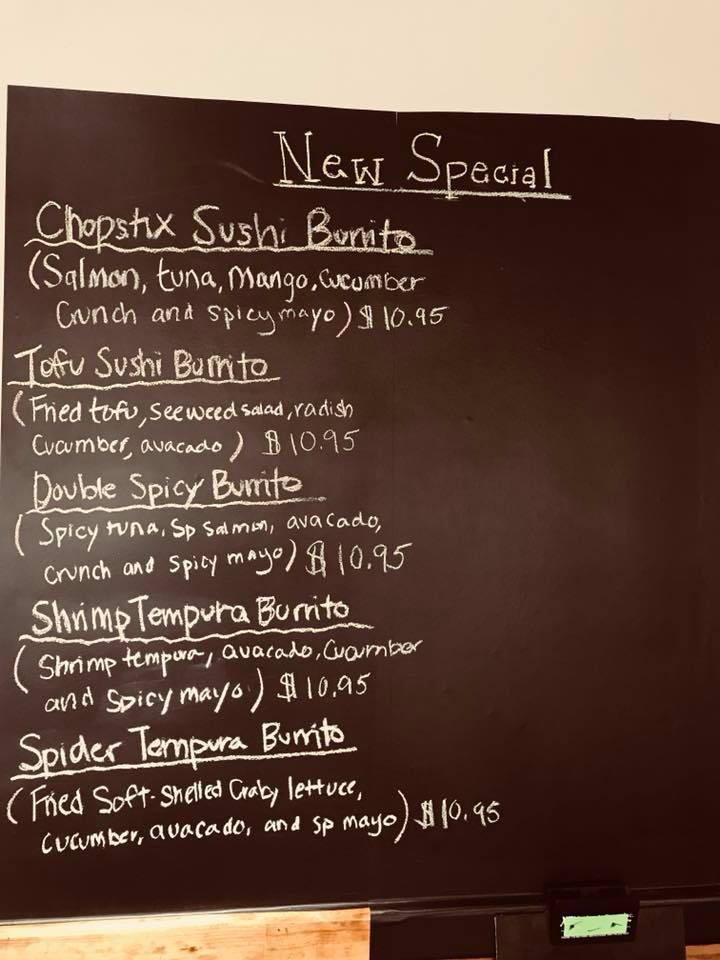 New Special
Chopstix Sushi Burrito
(Salmon, tuna, Mango, cucumber
Crunch and spicy mayo) $10.95
Tofu Sushi Burrito
(Fried tofu, seeweed salad, radish
Cucumber, avacado) $10.95
Double Spicy Burrito
(Spicy tuna, Sp salmon, avacado,
crunch and spicy mayo) $10.95
Shrimp Tempura Burrito
(Shrimp tempura, avacado, Cucumber
and Spicy mayo) $10.95
Spider Tempura Burrito
(Fried Soft-Shelled Craby lettuce,
cucumber, avacado, and sp mayo) $10.95